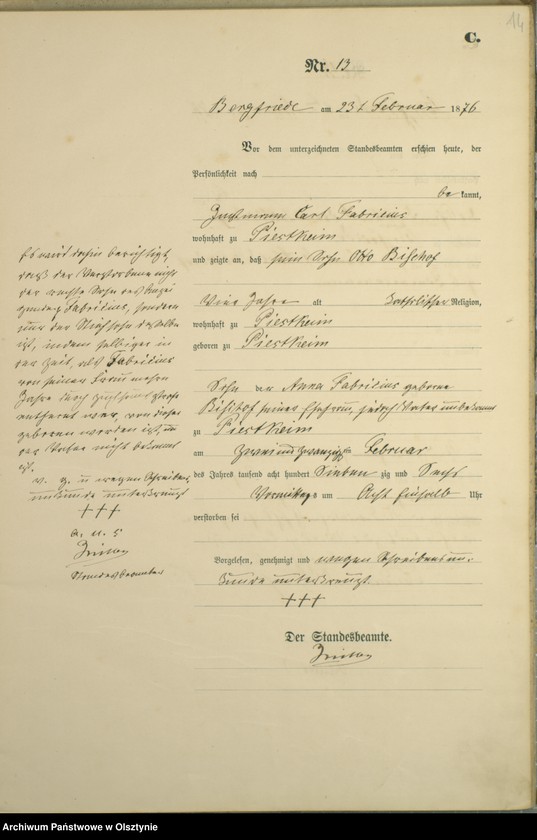 14
C.
Nr. 13
Bergfriede am 23t Februar 1876
Vor dem unterzeichneten Standesbeamten erschien heute, der
Persönlichkeit nach
be kannt,
Carl Fabricius
wohnhaft zu Piestkeim
und zeigte an, daß sein Sohn Otto Bischof
Vier Jahre alt katholischer Religion,
wohnhaft zu Piestkeim
geboren zu Piestkeim
Sohn der Anna Fabricius geborne
Bischof seiner Ehefrau, jedoch Vater unbekannt
zu Piestkeim
am zweiundzwanzigsten Februar
des Jahres tausend acht hundert Sieben zig und Sechs
Vormittags um Acht einhalb Uhr
verstorben sei
Vorgelesen, genehmigt und wegen Schreibensun-
kunde unterkreuzt.
+++
Der Standesbeamte.
Es wird dahin berichtigt,
daß der Verstorbene nicht
der rechte Sohn des
Fabricius, sondern
nur der Stiefsohn desselben
ist, indem selbiger in
der Zeit, als Fabricius
von seiner Frau mehre
Jahre durch
entfernt war, von dieser
geboren worden ist, und
der Vater nicht bekannt
ist.
v. g. u. wegen Schreibens
unkunde unterkreuzt
+++
a. u. s.
Standesbeamter
Archiwum Państwowe w Olsztynie